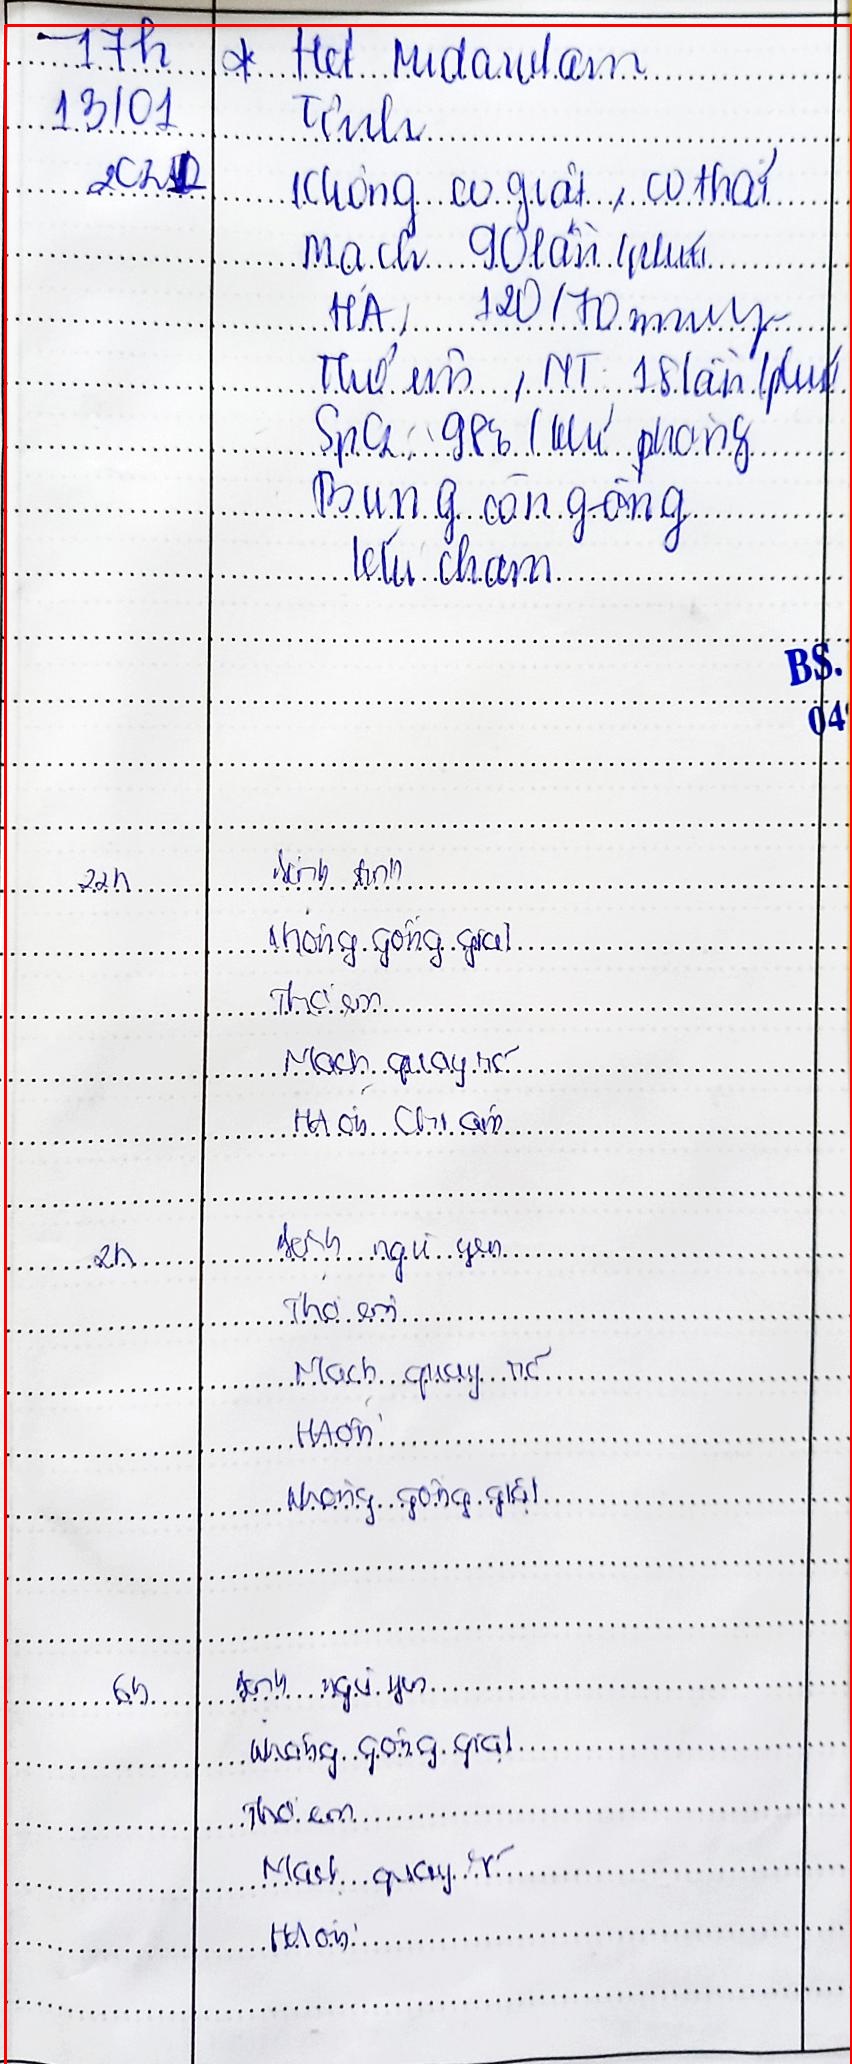 17h
* Hết Midazolam
13/01
Tỉnh
Không co giật, co thắt
Mạch 90 lần/phút
HA: 120/70 mmHg
Thở êm, NT: 18 lần/phút
SpO2: 98% / khí phòng
Bụng còn gồng
khi chạm
BS.
04
22h
Bệnh tỉnh
không gồng giật
Thở êm
Mạch quay rõ
HA ổn Chi ấm
2h
Bệnh ngủ yên
Thở êm
Mạch quay rõ
HA ổn
không gồng giật
6h
Bệnh ngủ yên
không gồng giật
Thở êm
Mạch quay rõ
HA ổn